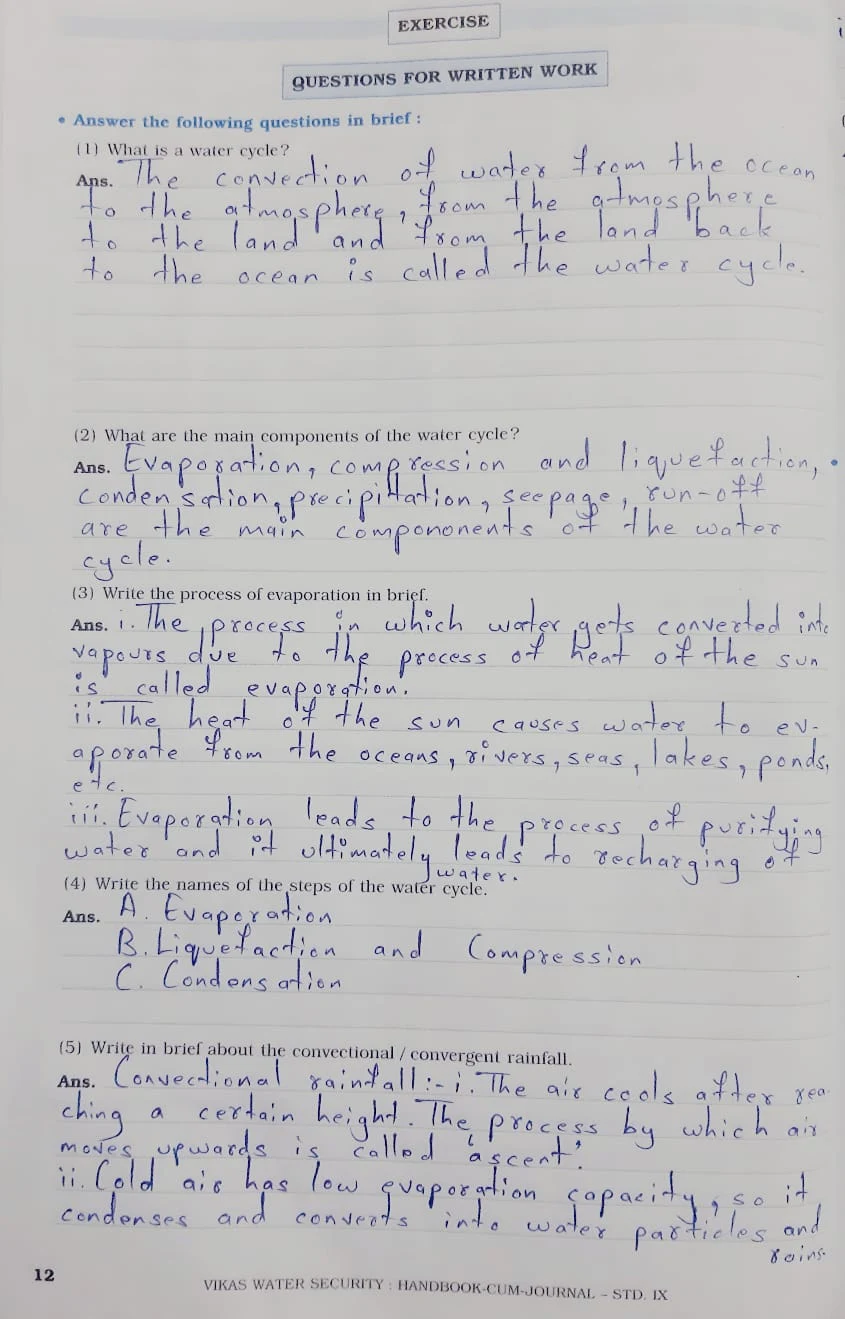 EXERCISE
QUESTIONS FOR WRITTEN WORK
• Answer the following questions in brief :
(1) What is a water cycle?
Ans. The convection of water from the ocean
to the atmosphere, from the atmosphere
to the land and from the land back
to the ocean is called the water cycle.
(2) What are the main components of the water cycle?
Ans. Evaporation, compression and liquefaction,
Condensation, precipitation, seepage, run-off
are the main compononents of the water
cycle.
(3) Write the process of evaporation in brief.
Ans. i. The process in which water gets converted into
vapours due to the process of heat of the sun
is called evaporation.
ii. The heat of the sun causes water to ev-
aporate from the oceans, rivers, seas, lakes, ponds,
etc.
iii. Evaporation leads to the process of purifying
water and it ultimately leads to recharging of
water.
(4) Write the names of the steps of the water cycle.
Ans. A. Evaporation
B. Liquefaction and Compression
C. Condensation
(5) Write in brief about the convectional / convergent rainfall.
Ans. Convectional rainfall:- i. The air cools after rea
ching a certain height. The process by which air
moves upwards is called 'ascent'.
ii. Cold air has low evaporation capacity, so it
condenses and converts into water particles and
rains
12
VIKAS WATER SECURITY : HANDBOOK-CUM-JOURNAL – STD. IX